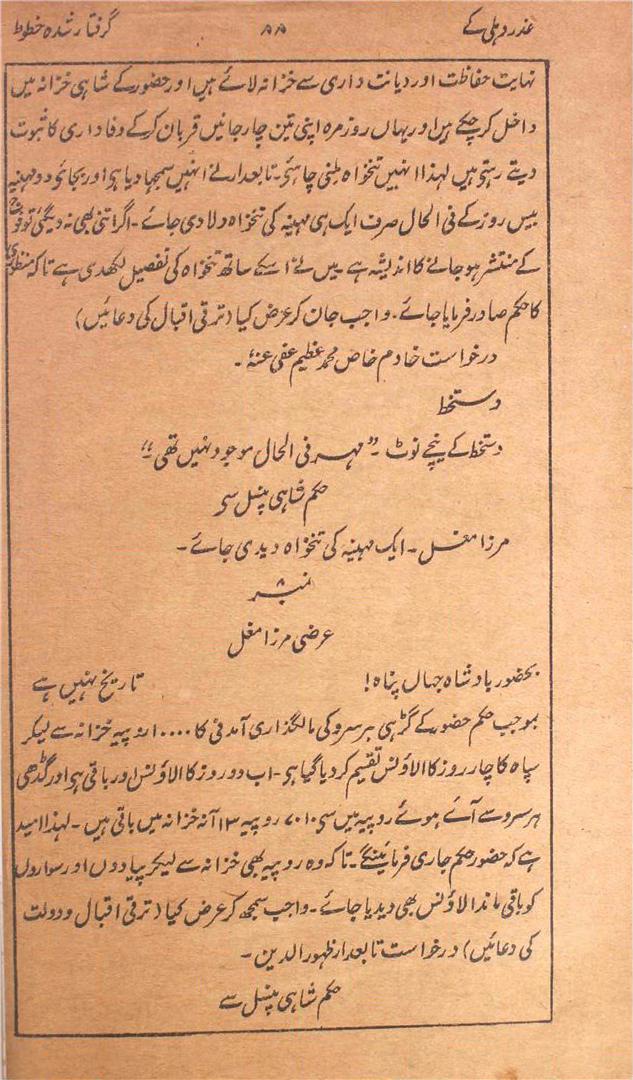 غدر دہلی کے ۸۸ گرفتار شدہ خطوط
نہایت حفاظت اور دیانت داری سے خزانہ لائے ہیں اور حضور کے شاہی خزانہ میں
داخل کر چکے ہیں اور یہاں روزمرہ اپنی تین چار جانیں قربان کر کے وفاداری کا ثبوت
دیتے رہتی ہیں لہذا انہیں تنخواہ ملنی چاہئے۔ تابعدار نے انہیں سمجہا دیا ہو اور بجائے دو مہینہ
بیس روز کے فی الحال صرف ایک ہی مہینہ کی تنخواہ دلا دی جائے۔ اگر اتنی بھی نہ دیگئی تو فوج
کے منتشر ہو جانے کا اندیشہ ہے۔ میں نے اسکے ساتھ تنخواہ کی تفصیل لکھدی ہے تاکہ منظوری
کا حکم صادر فرمایا جائے۔ واجب جان کر عرض کیا (ترقی اقبال کی دعائیں)
درخواست خادم خاص محمد عظیم عفی عنہٗ۔
دستخط
دستخط کے نیچے نوٹ۔ "مہر فی الحال موجود نہیں تھی۔"
حکم شاہی پنسل سے
مرزا مغل۔ ایک مہینہ کی تنخواہ دیدی جائے۔
نمبر ۸
عرضی مرزا مغل
بحضور بادشاہ جہاں پناہ! تاریخ نہیں ہے
بموجب حکم حضور کے گڑہی ہرسرو کی مالگذاری آمدنی کا ۱۰۰۰۰ روپیہ خزانہ سے لیکر
سپاہ کا چار روز کا الاؤنس تقسیم کر دیا گیا ہو۔ اب دو روز کا الاؤنس اور باقی ہو اور گڈھی
ہرسرو سے آئے ہوئے روپیہ میں سی ۷۰۱۰ روپیہ ۱۳ آنہ خزانہ میں باقی ہیں۔ لہذا امید
ہے کہ حضور حکم جاری فرمائینگے۔ تاکہ وہ روپیہ بھی خزانہ سے لیکر پیادوں اور سواروں
کو باقی ماندا الاؤنس بھی دیدیا جائے۔ واجب سمجھ کر عرض کیا (ترقی اقبال و دولت
کی دعائیں) درخواست تابعدار ظہور الدین۔
حکم شاہی پنسل سے